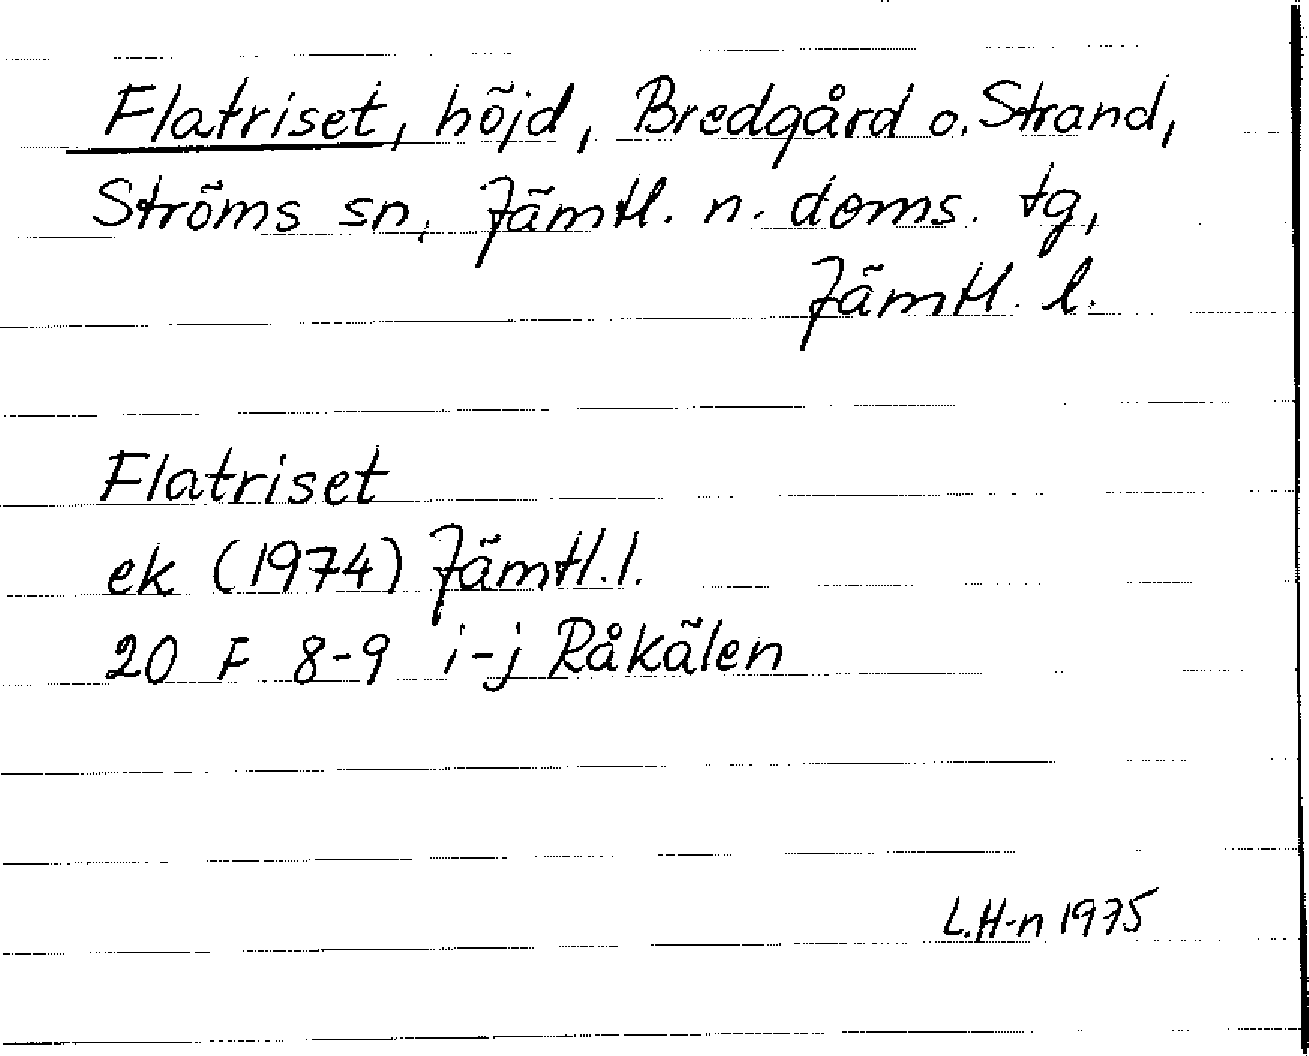 Flatriset, höjd, Bredgård o. Strand,
Ströms sn, Jämtl. n. doms. tg,
Jämtl. l.
Flatriset
ek (1974) Jämtl. l.
20 F 8-9 i-j Råkälen
L.H-n 1975